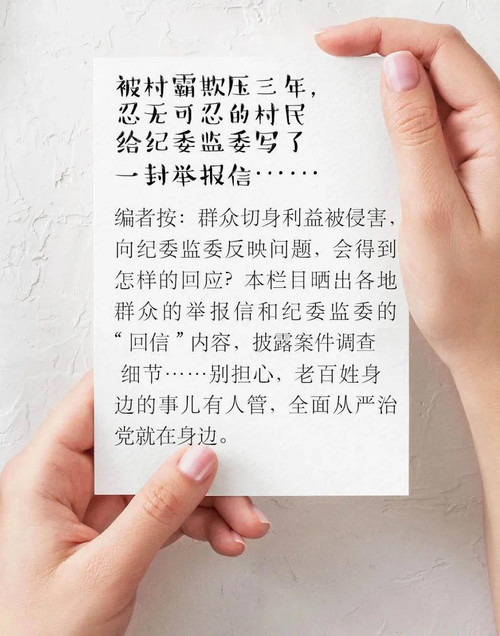 被村霸欺压三年，
忍无可忍的村民
给纪委监委写了
一封举报信……
编者按：群众切身利益被侵害，
向纪委监委反映问题，会得到
怎样的回应？本栏目晒出各地
群众的举报信和纪委监委的
“回信”内容，披露案件调查
细节……别担心，老百姓身
边的事儿有人管，全面从严治
党就在身边。